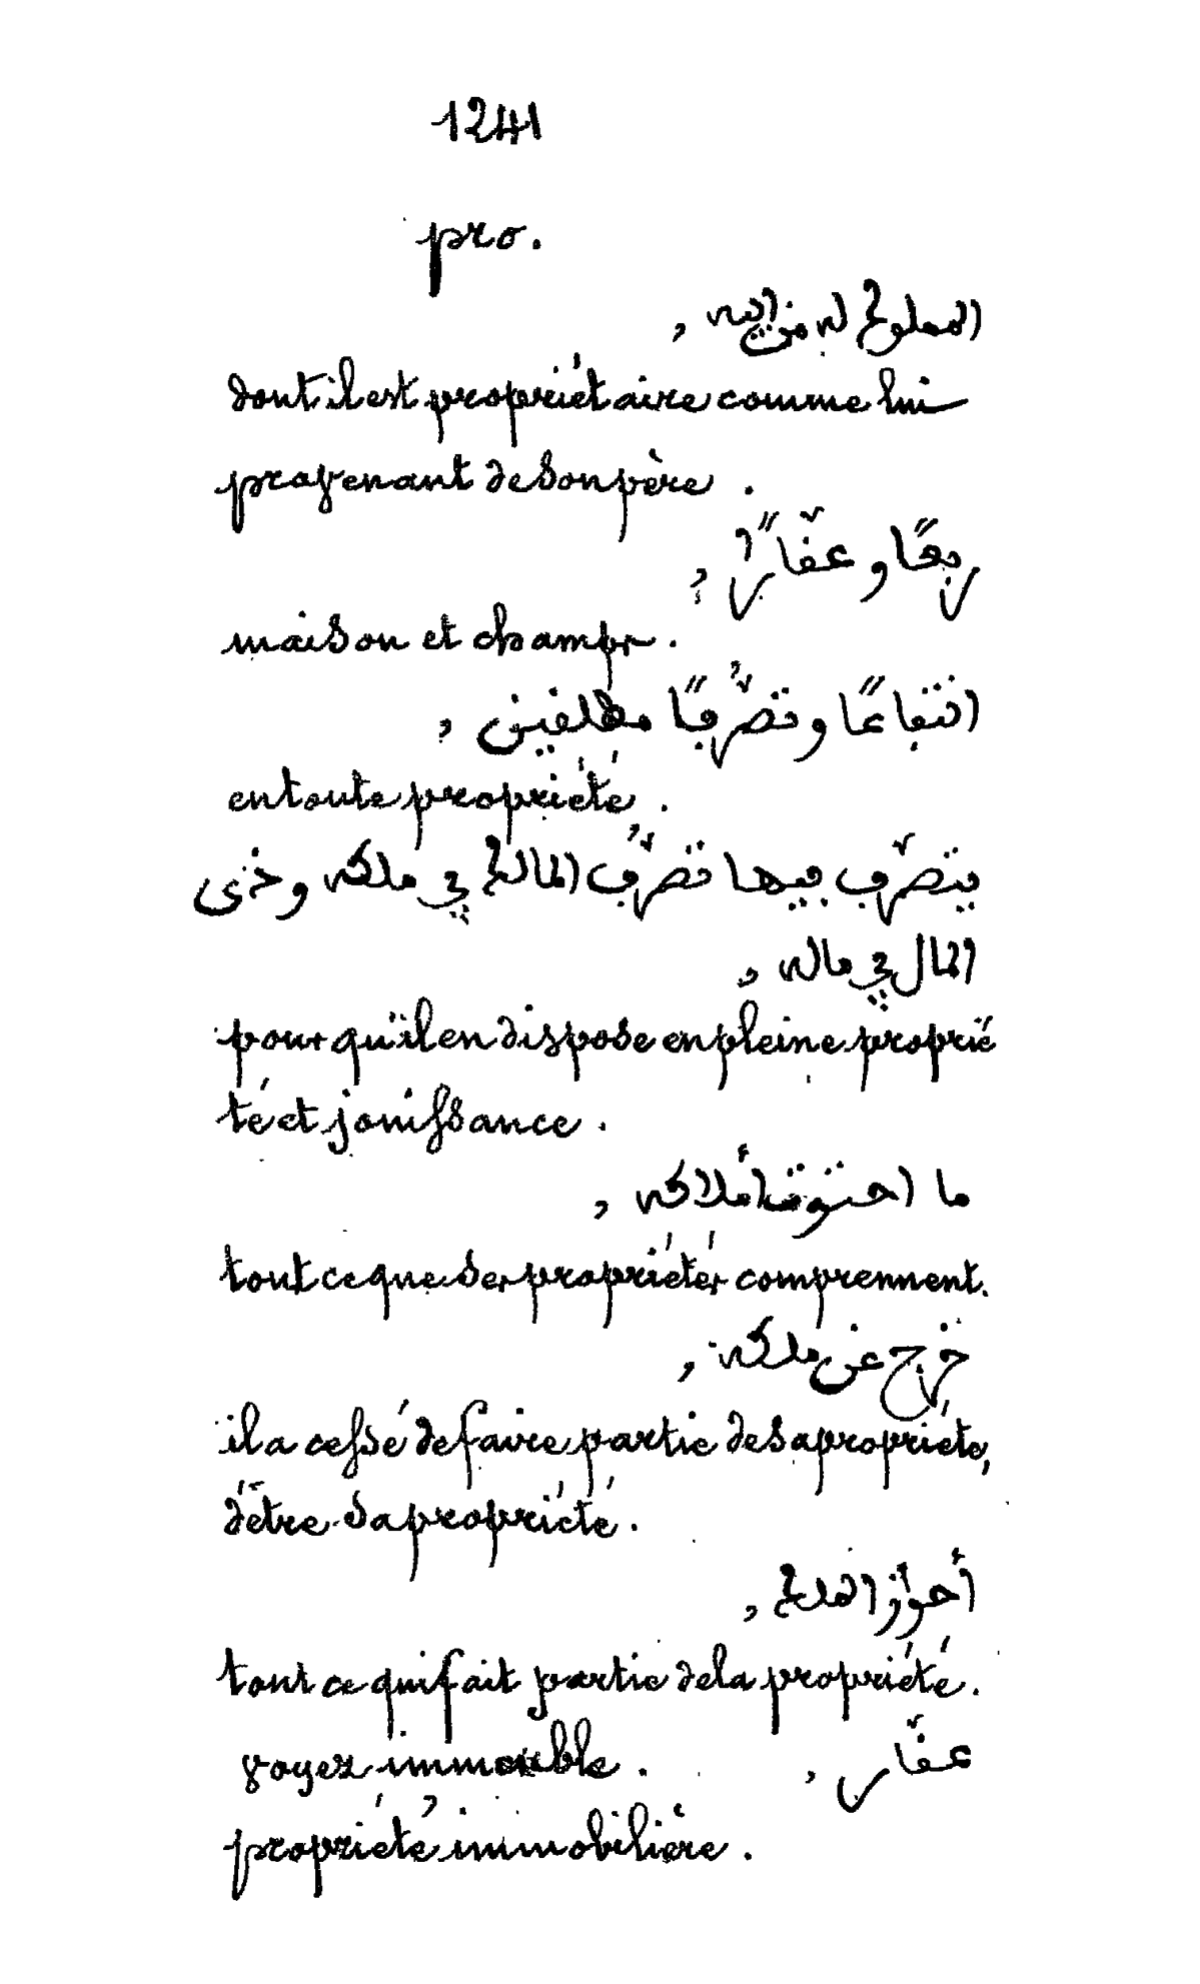 1241
pro.
المملوك له من ابيه ,
dont il est propriétaire comme lui
provenant de son père .
ربعًا و عقّارًا ,
maison et champs .
انتفاعًا وتصرُّفًا مطلقين ,
en toute propriété .
يتصرّف فيها تصرُّف المالك في ملكه وذى
المال في ماله ,
pour qu'il en dispose en pleine proprié
té et jouissance .
ما احتوت أملاكه ,
tout ce que ses propriétés comprennent.
خرج عن ملكه ,
il a cessé de faire partie de sa propriété,
d'être sa propriété .
أحواز الملك ,
tout ce qui fait partie de la propriété .
voyez immeuble . عقّار ,
propriété immobilière .